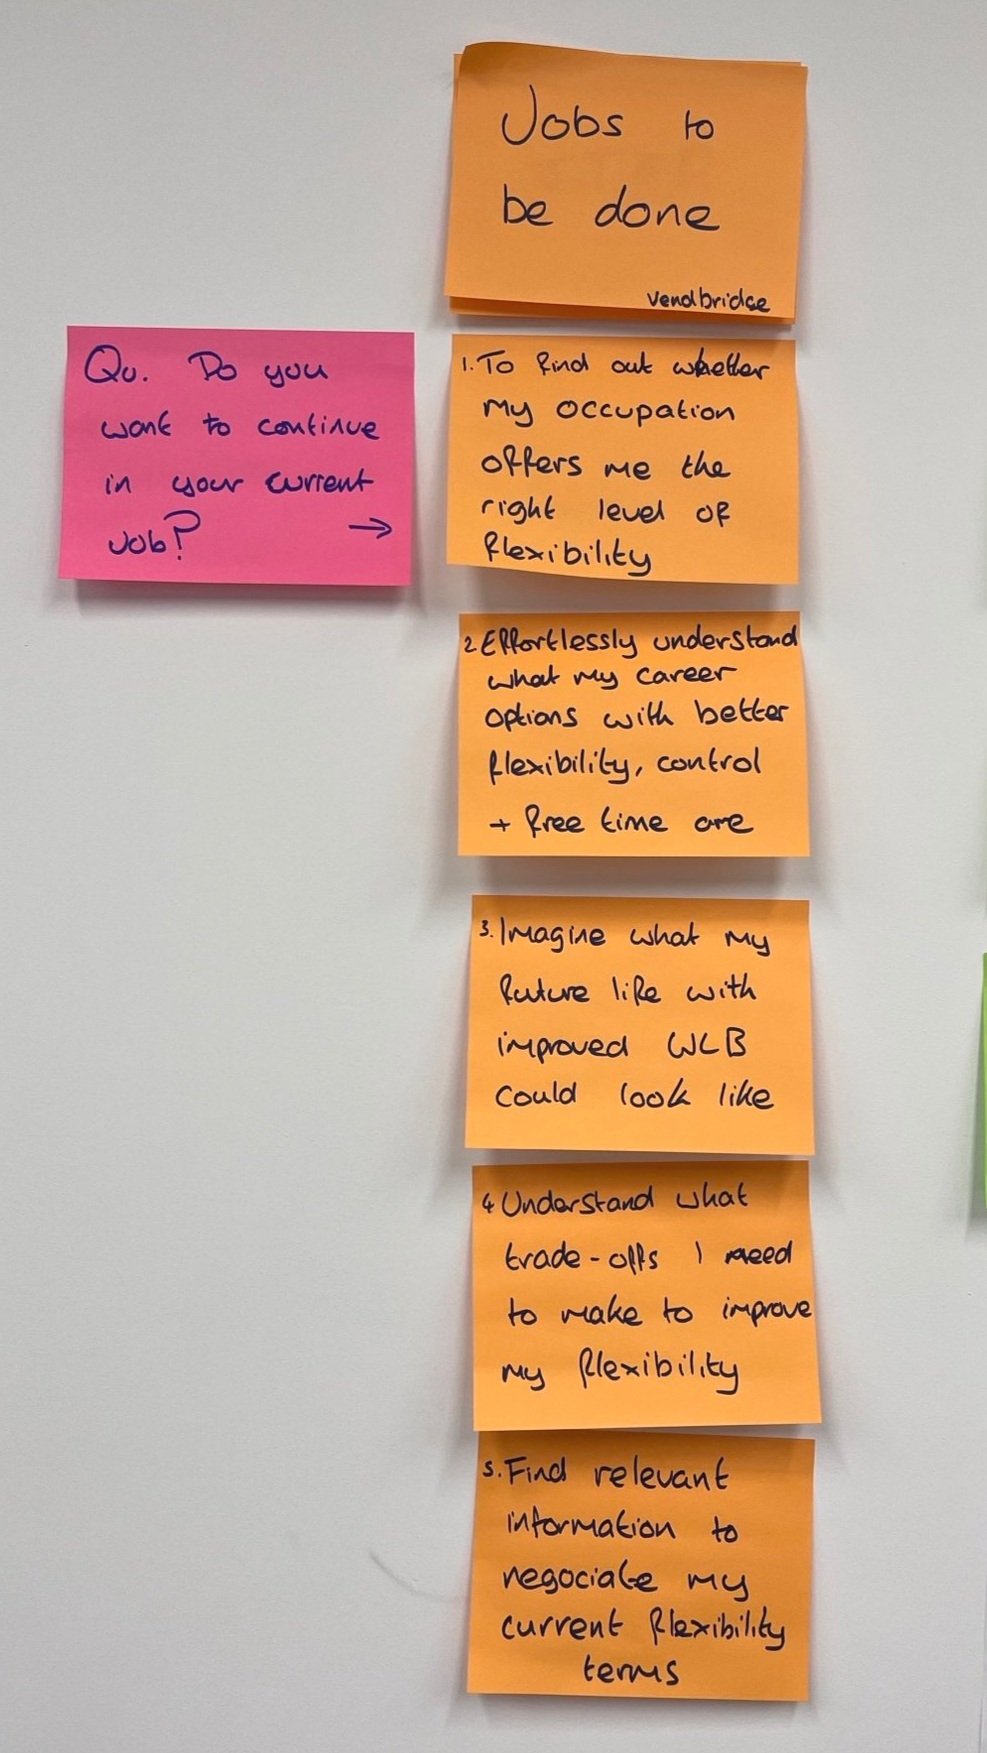 Jobs to
be done
vendbridge
Qu. Do you
want to continue
in your current
Job? →
1. To find out whether
my occupation
offers me the
right level of
flexibility
2. Effortlessly understand
what my career
options with better
flexibility, control
+ free time are
3. Imagine what my
future life with
improved WLB
could look like
4 Understand what
trade-offs I need
to make to improve
my flexibility
5. Find relevant
information to
negociate my
current flexibility
terms